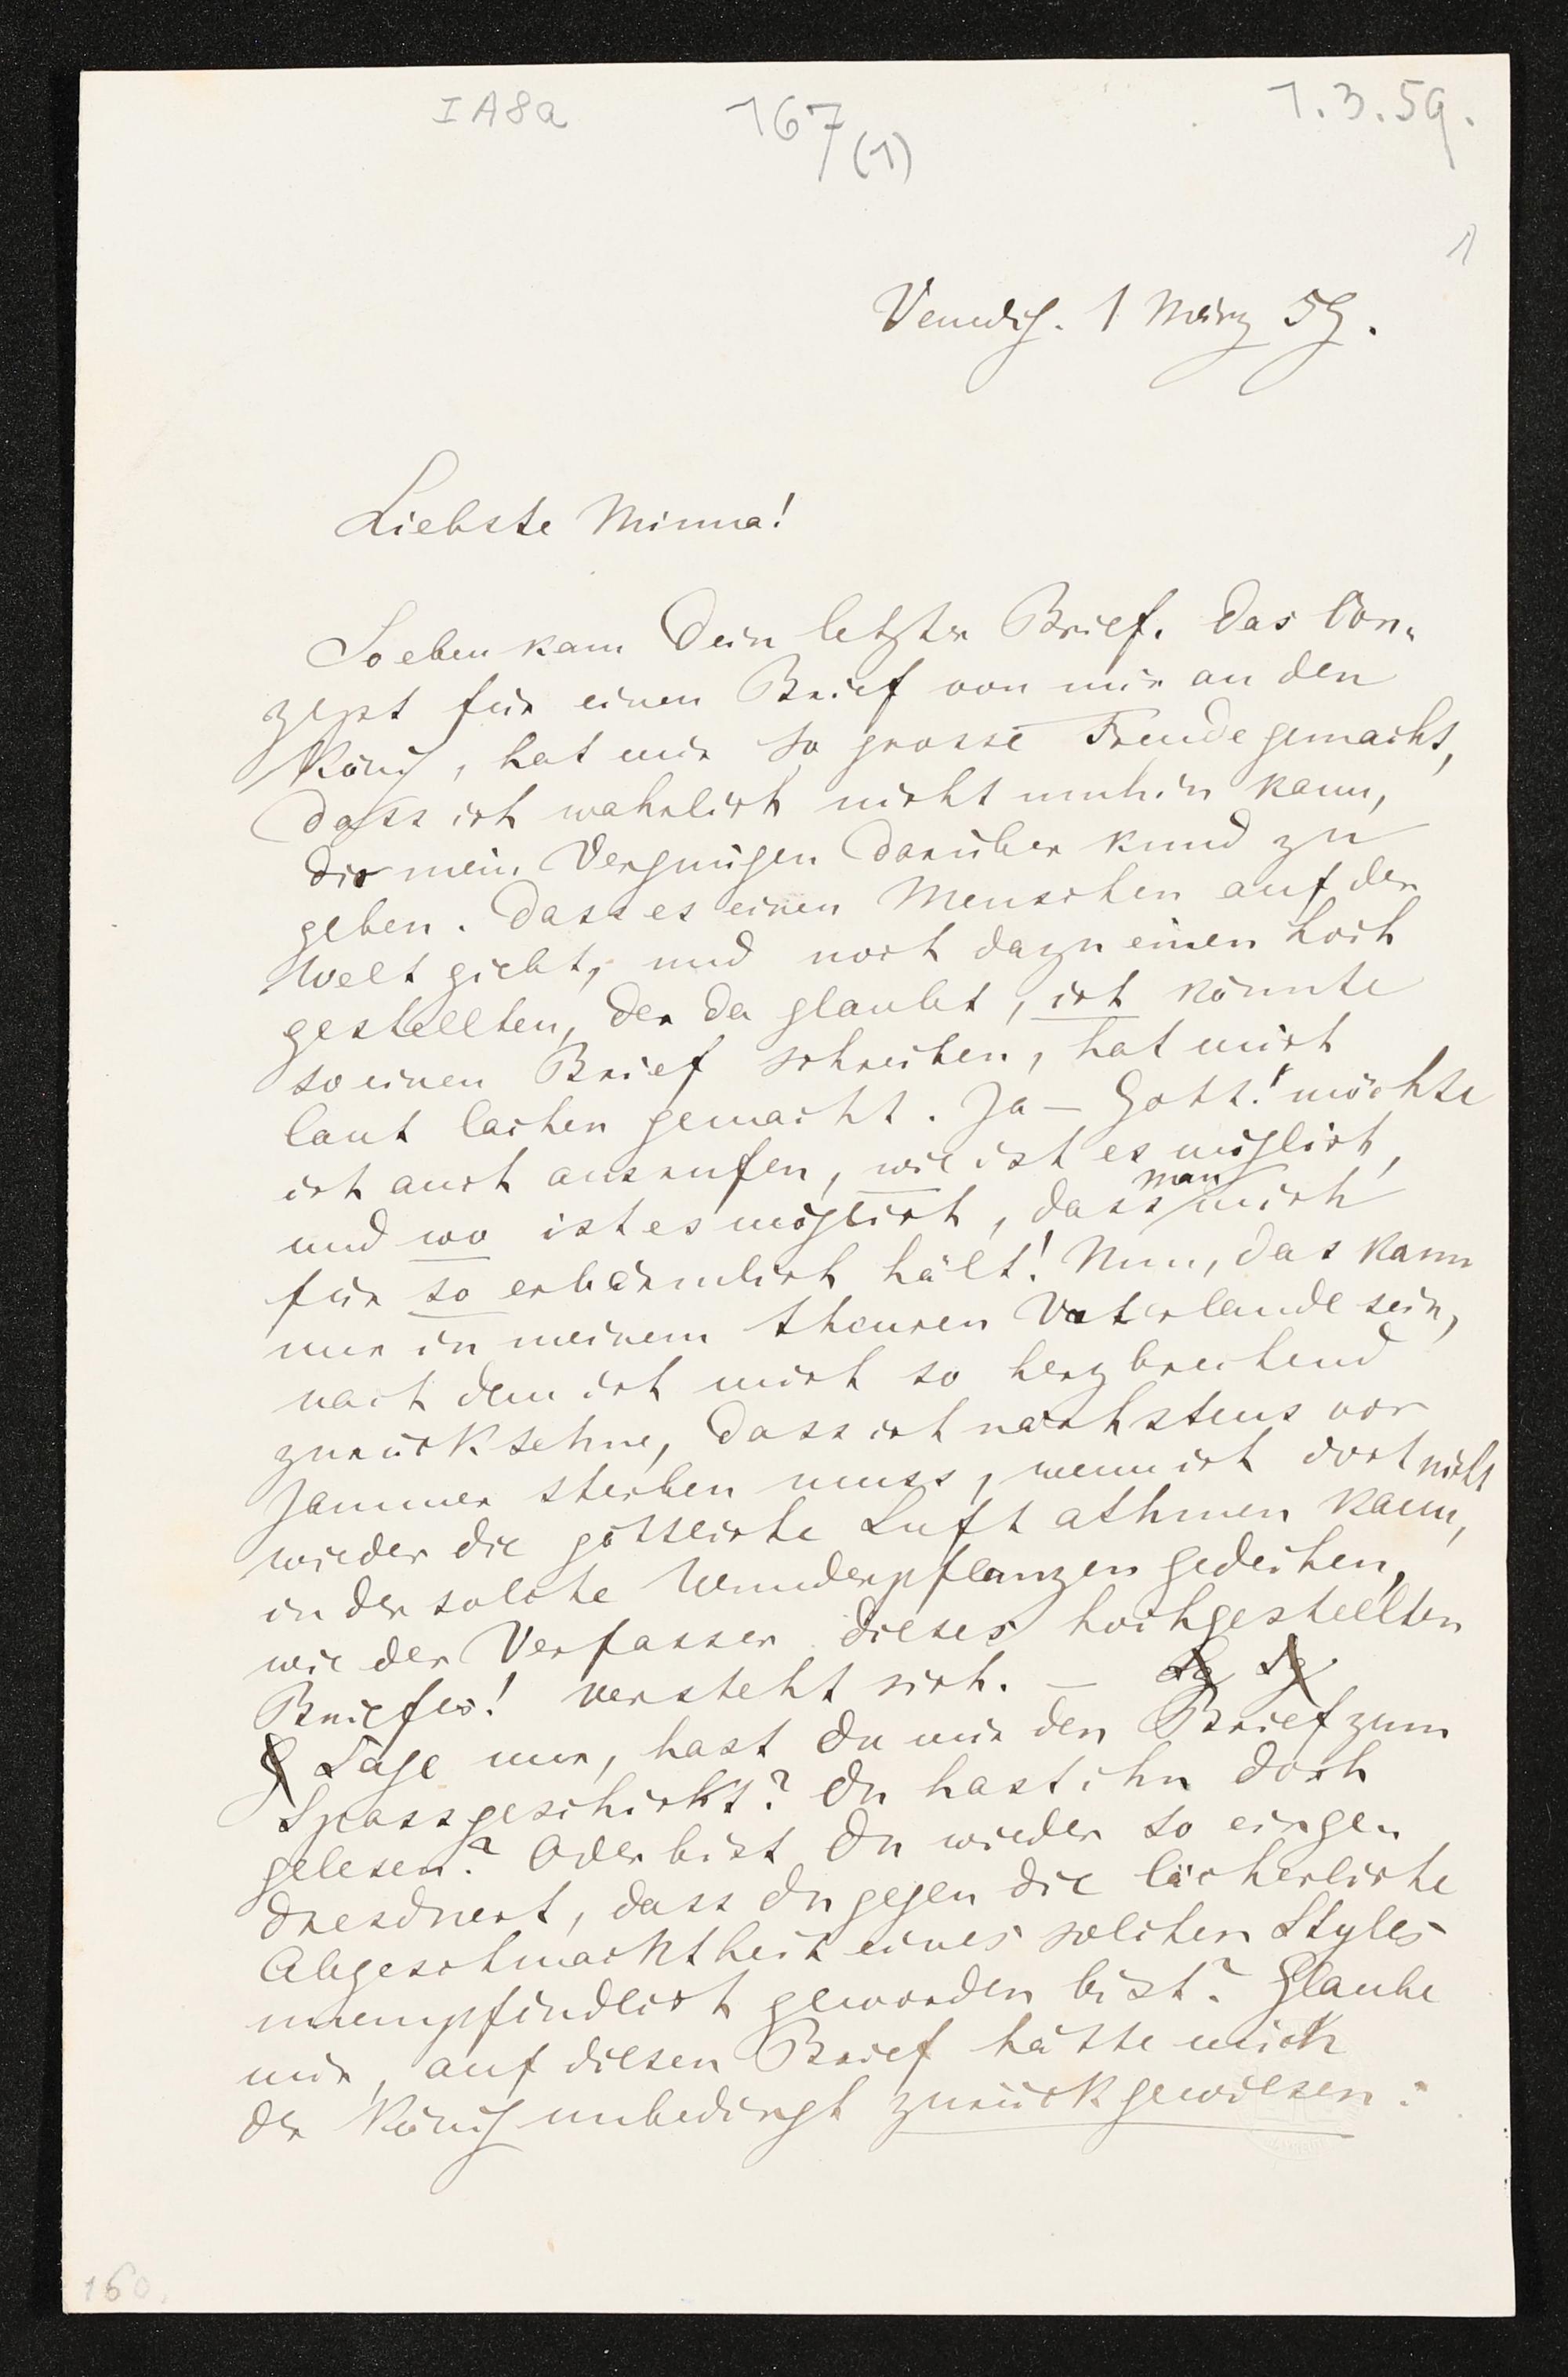 IA8a 167(1) 1.3.59.
1
Venedig. 1 März 59.
Liebste Minna!
Soeben kam Dein letzter Brief. Das Con-
zept für einen Brief von mir an den
König, hat mir so grosse Freude gemacht,
dass ich wahrlich nicht umhin kann,
dir mein Vergnügen darüber kund zu
geben. Dass es einen Menschen auf der
Welt giebt, und noch dazu einen hoch
gestellten, der da glaubt, ich könnte
so einen Brief schreiben, hat mich
laut lachen gemacht. Ja – Gott! möchte
ich auch ausrufen, wie ist es möglich,
und wo ist es möglich, dass man mich
für so erbärmlich hält! Nun, das kann
nur in meinem theuren Vaterlande sein,
nach dem ich mich so herzbrechend
zurücksehne, dass ich nächstens vor
Jammer sterben muss, wenn ich dort nicht
wieder die göttliche Luft athmen kann,
in der solche Wunderpflanzen gedeihen,
wie der Verfasser dieses hochgestellten
Briefes! versteht sich. –
Sage mir, hast Du mir den Brief zum
Spass geschickt? Du hast ihn doch
gelesen? Oder bist Du wieder so einge-
dresdnert, dass Du gegen die lächerliche
Abgeschmacktheit eines solchen Styles
unempfindlich geworden bist? Glaube
mir, auf diesen Brief hätte mich
der König unbedingt zurückgewiesen:
160.